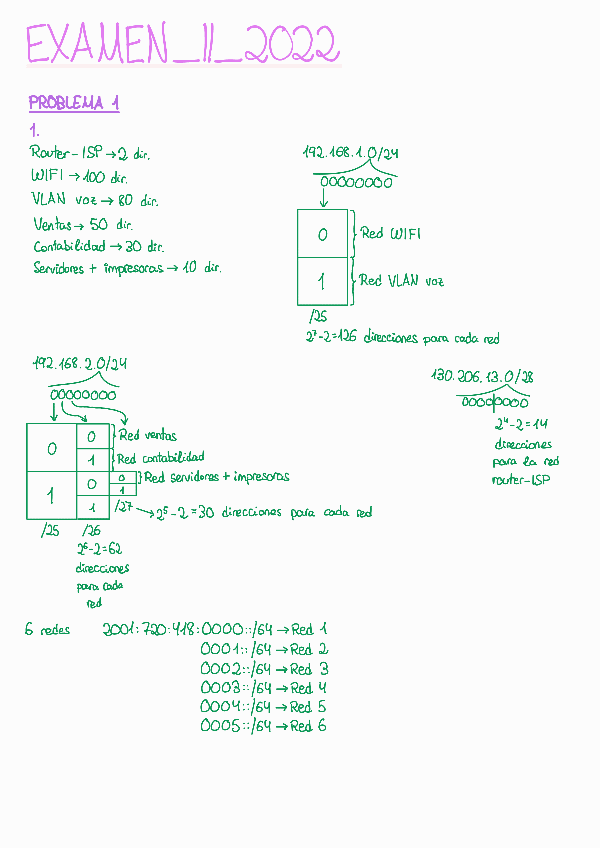 EXAMEN_II_2022
PROBLEMA 1
1.
Router-ISP → 2 dir.
WIFI → 100 dir.
VLAN voz → 80 dir.
Ventas → 50 dir.
Contabilidad → 30 dir.
Servidores + impresoras → 10 dir.
192.168.1.0/24
00000000
0 Red WIFI
1 Red VLAN voz
/25
2⁷-2=126 direcciones para cada red
192.168.2.0/24
00000000
0 0 Red ventas
1 Red contabilidad
1 0 0 Red servidores + impresoras
1
1 /27 → 2⁵-2=30 direcciones para cada red
/25 /26
2⁶-2=62
direcciones
para cada
red
130.206.13.0/28
00000000
2⁴-2=14
direcciones
para la red
router-ISP
6 redes 2001:720:418:0000::/64 → Red 1
0001::/64 → Red 2
0002::/64 → Red 3
0003::/64 → Red 4
0004::/64 → Red 5
0005::/64 → Red 6